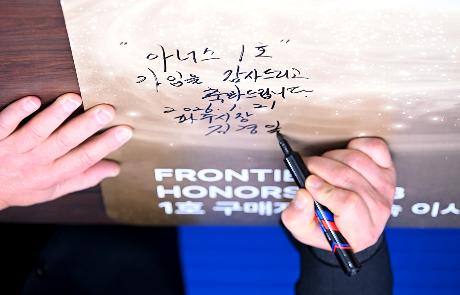 "아너스 1호"
가입을 감사드리고
축하드립니다.
2026. 1. 21
파주시장
김경일
FRONTIE
HONORS
1호 구매
이사